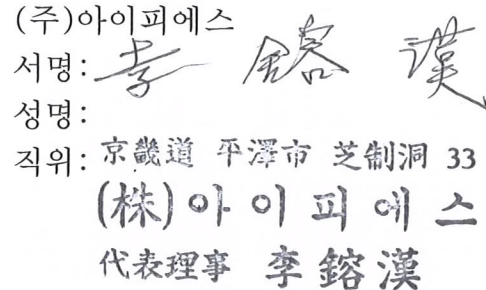 (주)아이피에스
서명: 李 鎔 漢
성명:
직위: 京畿道 平澤市 芝制洞 33
(株)아이피에스
代表理事 李鎔漢